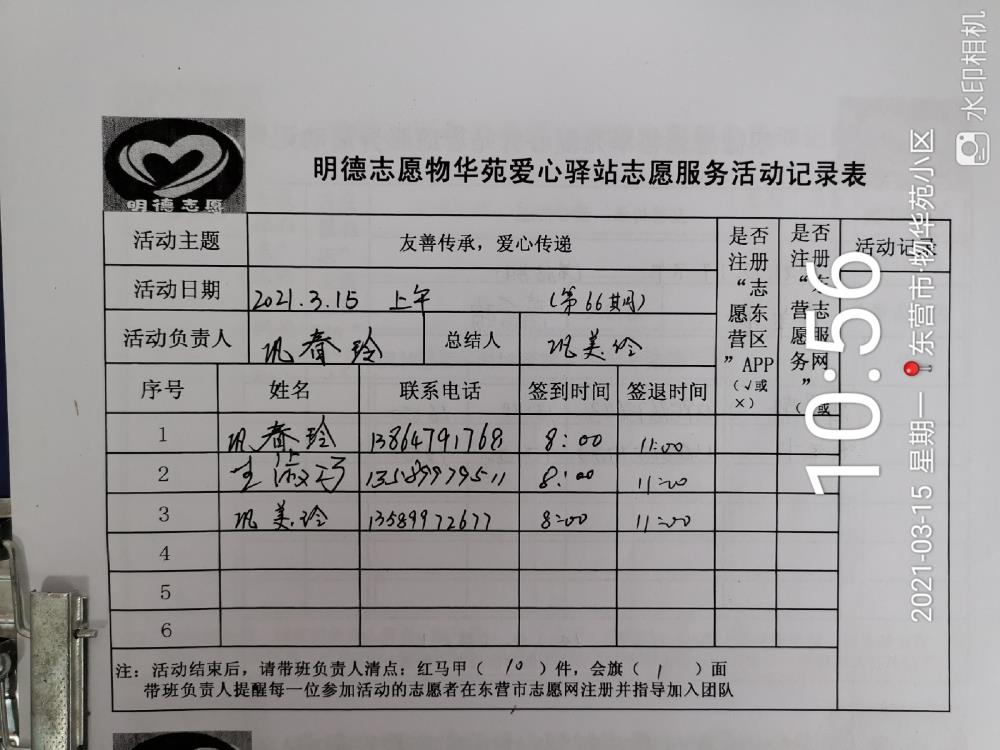 水印相机
明德志愿
明德志愿物华苑爱心驿站志愿服务活动记录表
活动主题 友善传承，爱心传递
是否注册“志愿东营区”APP（√或×）
是否注册“东营志愿服务网”（√或
活动记录
活动日期 2021.3.15 上午 （第66期）
活动负责人 巩春玲 总结人 巩美玲
序号 姓名 联系电话 签到时间 签退时间
1 巩春玲 13864791768 8:00 11:00
2 13589979511 8:00 11:00
3 巩美玲 13589972677 8:00 11:00
4
5
6
注：活动结束后，请带班负责人清点：红马甲（ 10 ）件，会旗（ 1 ）面
带班负责人提醒每一位参加活动的志愿者在东营市志愿网注册并指导加入团队
10:56
2021-03-15 星期一 东营市·物华苑小区